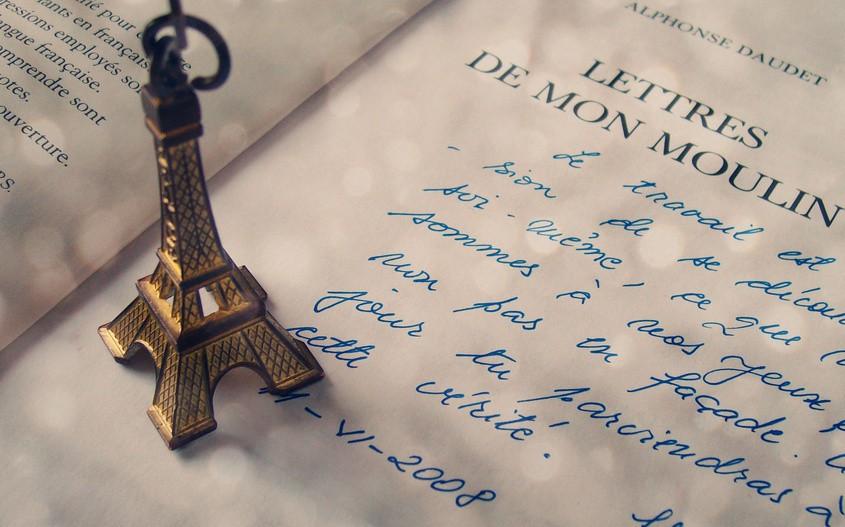 pour
ants en français
ressions employés so
ngue française.
omprendre sont
otes.
ouverture.
ALPHONSE DAUDET
LETTRES
DE MON MOULIN
Le travail est
- sion de se décou
soi-même, ce que
sommes à nos yeux
non pas en façade.
jour tu parviendras à
cette vérité.
VI-2008